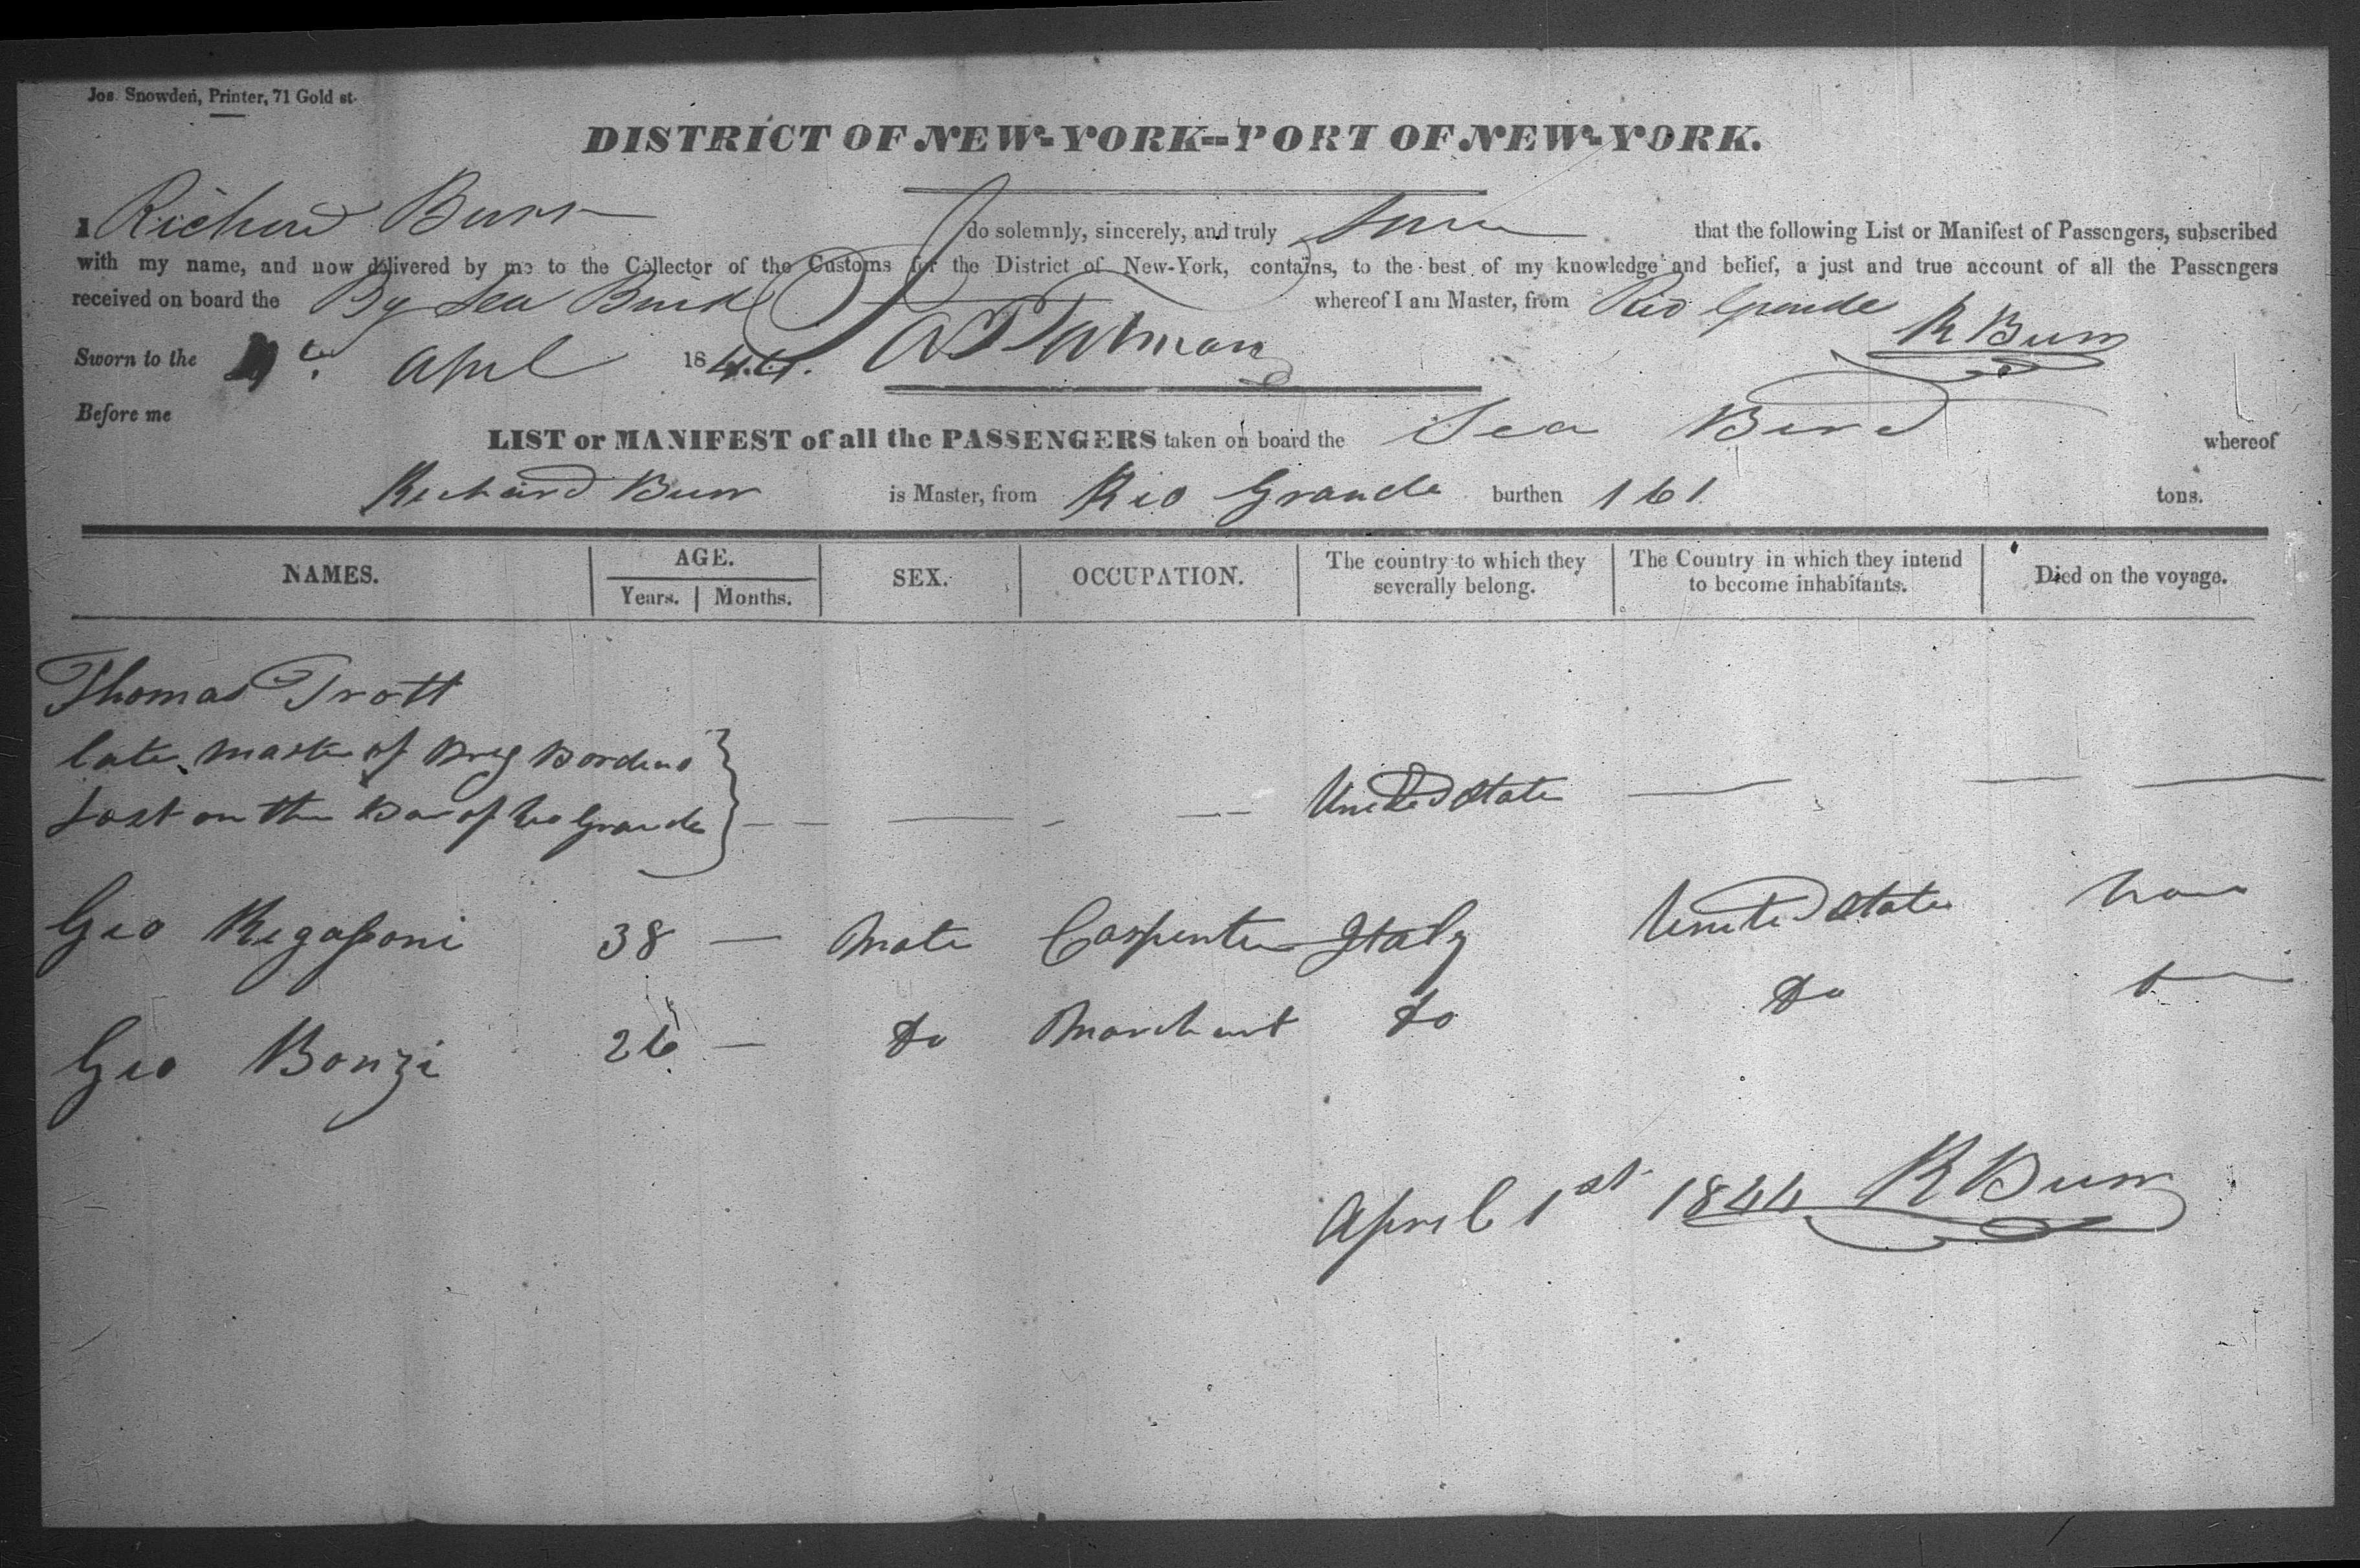 Jos. Snowden, Printer, 71 Gold st.
DISTRICT OF NEW-YORK--PORT OF NEW-YORK.
I Richard Burr do solemnly, sincerely, and truly that the following List or Manifest of Passengers, subscribed
with my name, and now delivered by me to the Collector of the Customs for the District of New-York, contains, to the best of my knowledge and belief, a just and true account of all the Passengers
received on board the Sea Bird whereof I am Master, from Rio Grande
R Burr
Sworn to the April 1844.
Before me
LIST or MANIFEST of all the PASSENGERS taken on board the Sea Bird whereof
Richard Burr is Master, from Rio Grande burthen 161 tons.
NAMES. AGE. Years. Months. SEX. OCCUPATION. The country to which they severally belong. The Country in which they intend to become inhabitants. Died on the voyage.
Thomas Trott
late master of Brig
Lost on the Bar of Rio Grande United State
Geo Regassoni 38 — Male Carpenter Italy United States
Geo Bonzi 26 — Do Marchant Do Do
April 1st 1844 R Burr